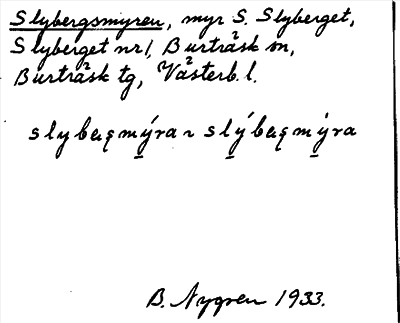 Slybergsmyren, myr S. Slyberget,
Slyberget nr 1, Burträsk sn,
Burträsk tg, Västerb. l.
slybęęmýra ~ slýbęęmýra
B. Nygren 1933.